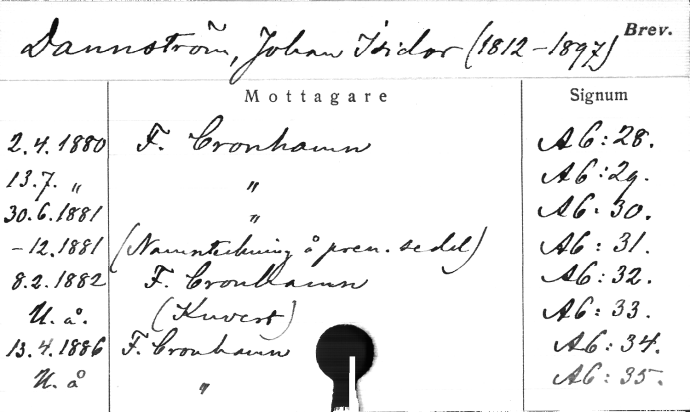 Dannström, Johan Isidor (1812-1897) Brev.
Mottagare Signum
2.4.1880 F. Cronhamn A6:28.
13.7. „ „ A6:29.
30.6.1881 „ A6:30.
-12.1881 (Namnteckning å pren. sedel) A6:31.
8.2.1882 F. Cronhamn A6:32.
U.å. (Kuvert) A6:33.
13.4.1886 F. Cronhamn A6:34.
U.å „ A6:35.